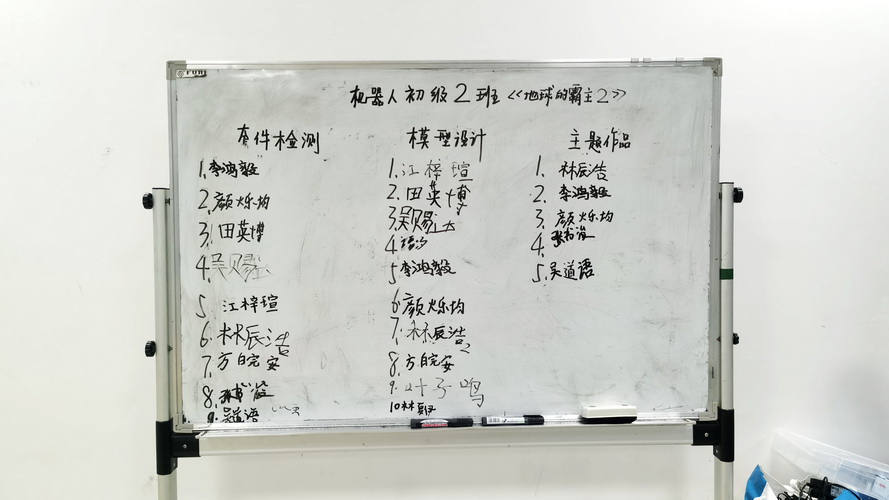 机器人初级2班《地球的霸主2》
套件检测
1.李鸿毅
2.颜烁均
3.田英博
4.吴赐
5 江梓瑄
6.林辰浩
7.方皖安
8.
9.吴道语
模型设计
1.江梓瑄
2.田英博
3.吴赐达
4
5 李鸿毅
6.颜烁均
7.林辰浩
8.方皖安
9.叶子鸣
10林
主题作品
1.林辰浩
2.李鸿毅
3.颜烁均
4
5.吴道语